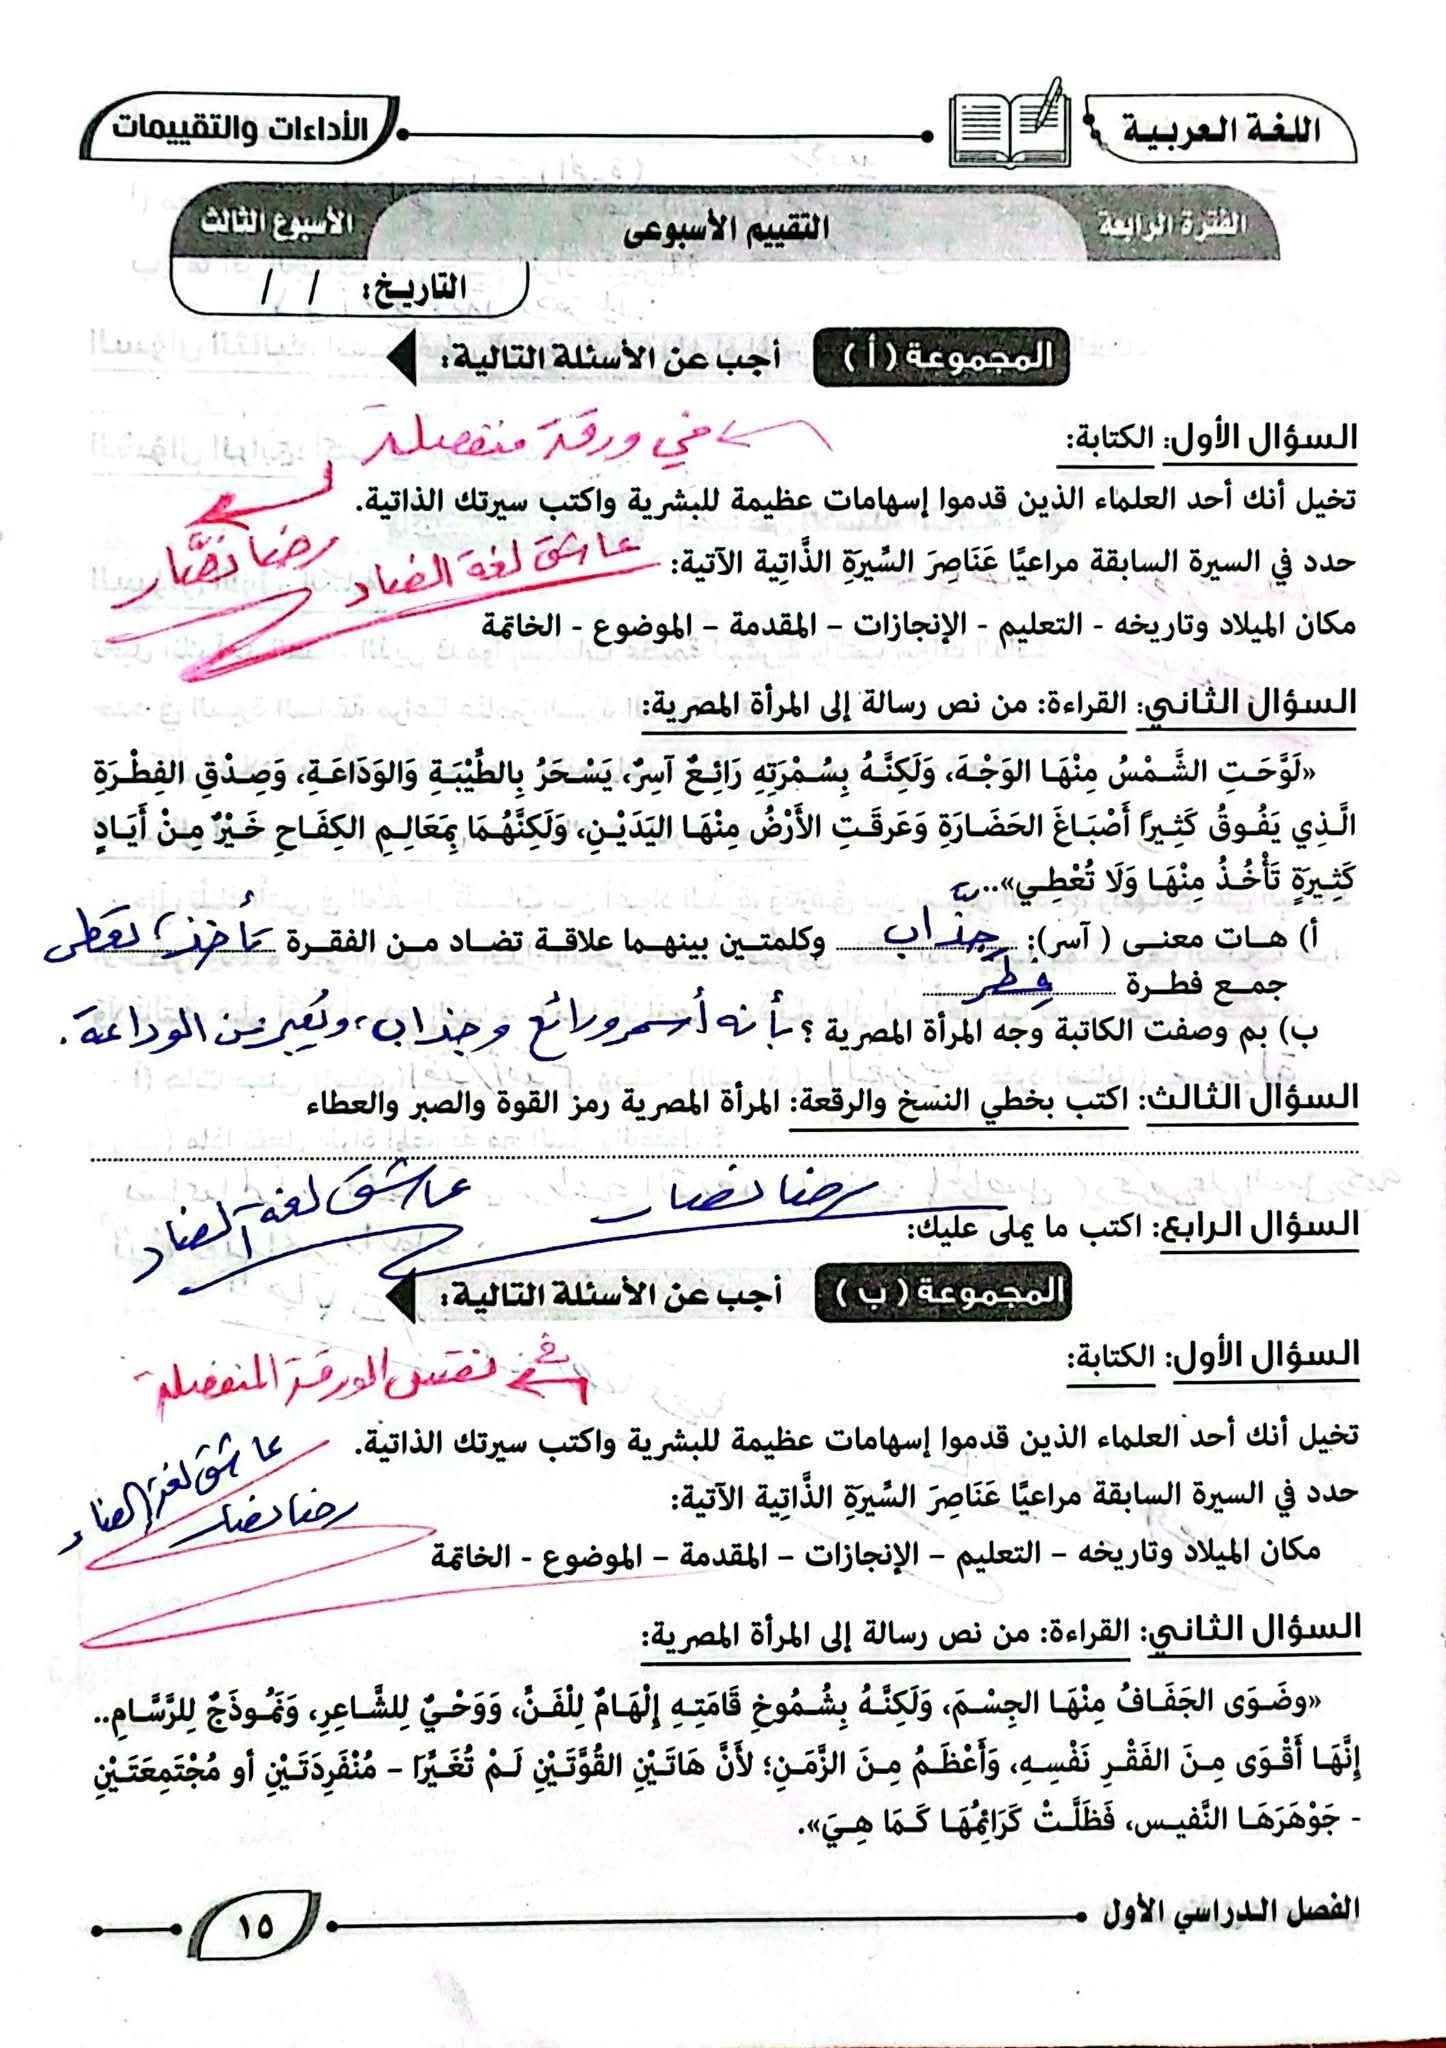 اللغة العربية
الأداءات والتقييمات
الفترة الرابعة
التقييم الأسبوعى
الأسبوع الثالث
التاريخ: / /
المجموعة (أ) أجب عن الأسئلة التالية:
السؤال الأول: الكتابة:
في ورقة منفصلة
تخيل أنك أحد العلماء الذين قدموا إسهامات عظيمة للبشرية واكتب سيرتك الذاتية.
حدد في السيرة السابقة مراعيًا عَنَاصِرَ السِّيرَةِ الذَّاتِيةِ الآتية:
عاشق لغة الضاد
رضا نصَّار
مكان الميلاد وتاريخه - التعليم - الإنجازات – المقدمة – الموضوع - الخاتمة
السؤال الثاني: القراءة: من نص رسالة إلى المرأة المصرية:
«لَوَّحَتِ الشَّمْسُ مِنْهَا الوَجْهَ، وَلَكِنَّهُ بِسُمْرَتِهِ رَائِعٌ آسِرٌ، يَسْحَرُ بِالطِّيْبَةِ وَالوَدَاعَةِ، وَصِدْقِ الفِطْرَةِ
الَّذِي يَفُوقُ كَثِيرًا أَصْبَاغَ الحَضَارَةِ وَعَرقَتِ الأَرْضُ مِنْهَا اليَدَيْنِ، وَلَكِنَّهُمَا بِمَعَالِمِ الكِفَاحِ خَيْرٌ مِنْ أَيَادٍ
كَثِيرَةٍ تَأْخُذُ مِنْهَا وَلَا تُعْطِي»..
أ) هات معنى ( آسر): جذَّاب وكلمتين بينهما علاقة تضاد من الفقرة تأخذ، تعطى
جمع فطرة فِطَر
ب) بم وصفت الكاتبة وجه المرأة المصرية ؟ بأنه أسمر ورائع وجذاب، ويُعبر عن الوداعة.
السؤال الثالث: اكتب بخطي النسخ والرقعة: المرأة المصرية رمز القوة والصبر والعطاء
رضا نصار
عاشق لغة الضاد
السؤال الرابع: اكتب ما يملى عليك:
المجموعة (ب) أجب عن الأسئلة التالية:
السؤال الأول: الكتابة:
في نفس الورقة المنفصلة
تخيل أنك أحد العلماء الذين قدموا إسهامات عظيمة للبشرية واكتب سيرتك الذاتية.
عاشق لغة الضاد
حدد في السيرة السابقة مراعيًا عَنَاصِرَ السِّيرَةِ الذَّاتِيةِ الآتية:
رضا نصار
مكان الميلاد وتاريخه – التعليم – الإنجازات – المقدمة – الموضوع - الخاتمة
السؤال الثاني: القراءة: من نص رسالة إلى المرأة المصرية:
«وضَوَى الجَفَافُ مِنْهَا الجِسْمَ، وَلَكِنَّهُ بِشُمُوخِ قَامَتِهِ إِلْهَامٌ لِلْفَنِّ، وَوَحْيٌ لِلشَّاعِرِ، وَنَمُوذَجٌ لِلرَّسَّامِ..
إِنَّهَا أَقْوَى مِنَ الفَقْرِ نَفْسِهِ، وَأَعْظَمُ مِنَ الزَّمَنِ؛ لأَنَّ هَاتَيْنِ القُوَّتَيْنِ لَمْ تُغَيِّرَا – مُنْفَرِدَتَيْنِ أو مُجْتَمِعَتَيْنِ
- جَوْهَرَهَا النَّفيس، فَظَلَّتْ كَرَائِمُهَا كَمَا هِيَ».
الفصل الدراسي الأول
١٥